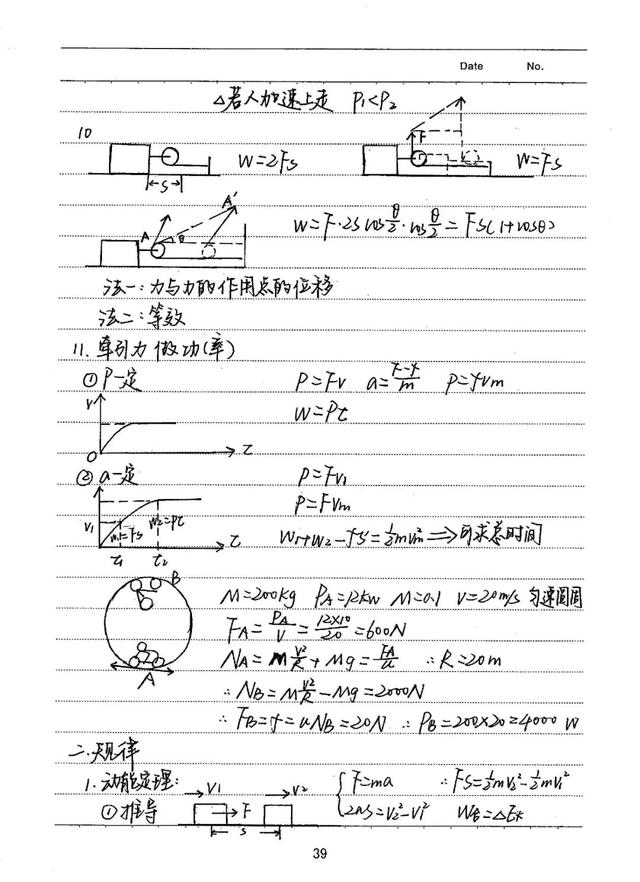 Date No.
△若人加速上走 P₁<P₂
10
F
W=2Fs W=Fs
S
A A' θ
W=F·2s cos θ/2 · cos θ/2 = Fs(1+cosθ)
法一:力与力的作用点的位移
法二:等效
11. 牵引力做功(率)
① P一定 P=Fv a=F-f/m P=fvm
V W=Pt
O t
② a一定 P=Fv₁
V P=Fvm
V₁ W₁=Fs W₂=Pt t W₁+W₂-fS=½mvm² ⟹可求总时间
t₁ t₂
B M=200kg PA=12kw M=0.1 V=20m/s 匀速圆周
FA=PA/V=12×10/20=600N
NA=M V²/R+Mg=FA/u ∴R=20m
A
∴NB=M V²/R-Mg=2000N
∴FB=f=uNB=20N ∴PB=200×20=4000 W
二.规律
1.动能定理: V₁ V₂ F=ma ∴FS=½mV₂²-½mV₁²
①推导 F 2as=V₂²-V₁² W合=△Ek
S
39